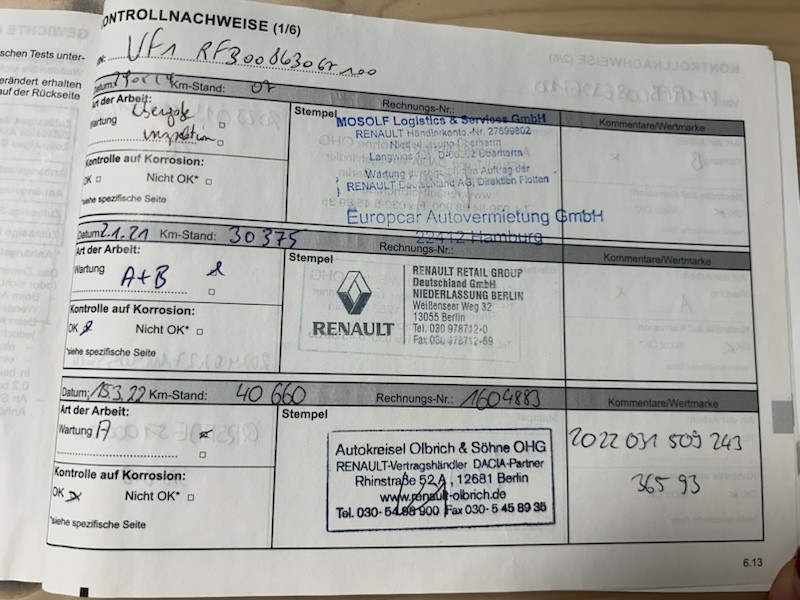 schen Tests unter-
erändert erhalten
auf der Rückseite
ONTROLLNACHWEISE (1/6)
VF1 RF300
Datum: Km-Stand: 07 Rechnungs-Nr.:
Art der Arbeit: Stempel Kommentare/Wertmarke
Wartung Übergabe
inspektion
Kontrolle auf Korrosion:
OK Nicht OK*
*siehe spezifische Seite
MOSOLF Logistics & Services GmbH
RENAULT Händlerkonto.-Nr. 27699802
Wartung im Auftrag der
RENAULT Deutschland AG, Direktion Flotten
Europcar Autovermietung GmbH
22412 Hamburg
Datum: 2.1.21 Km-Stand: 30375 Rechnungs-Nr.:
Art der Arbeit: Stempel Kommentare/Wertmarke
Wartung A+B
Kontrolle auf Korrosion:
OK Nicht OK*
*siehe spezifische Seite
RENAULT
RENAULT RETAIL GROUP
Deutschland GmbH
NIEDERLASSUNG BERLIN
Weißenseer Weg 32
13055 Berlin
Tel. 030 978712-0
Fax 030 978712-69
Datum: 15.3.22 Km-Stand: 40 660 Rechnungs-Nr.: 1604883
Art der Arbeit: Stempel Kommentare/Wertmarke
Wartung A
Kontrolle auf Korrosion:
OK Nicht OK*
*siehe spezifische Seite
Autokreisel Olbrich & Söhne OHG
RENAULT-Vertragshändler DACIA-Partner
Rhinstraße 52A, 12681 Berlin
www.renault-olbrich.de
Tel. 030- 54 98 900 Fax 030- 5 45 89 35
2022 031 509 243
365 93
6.13